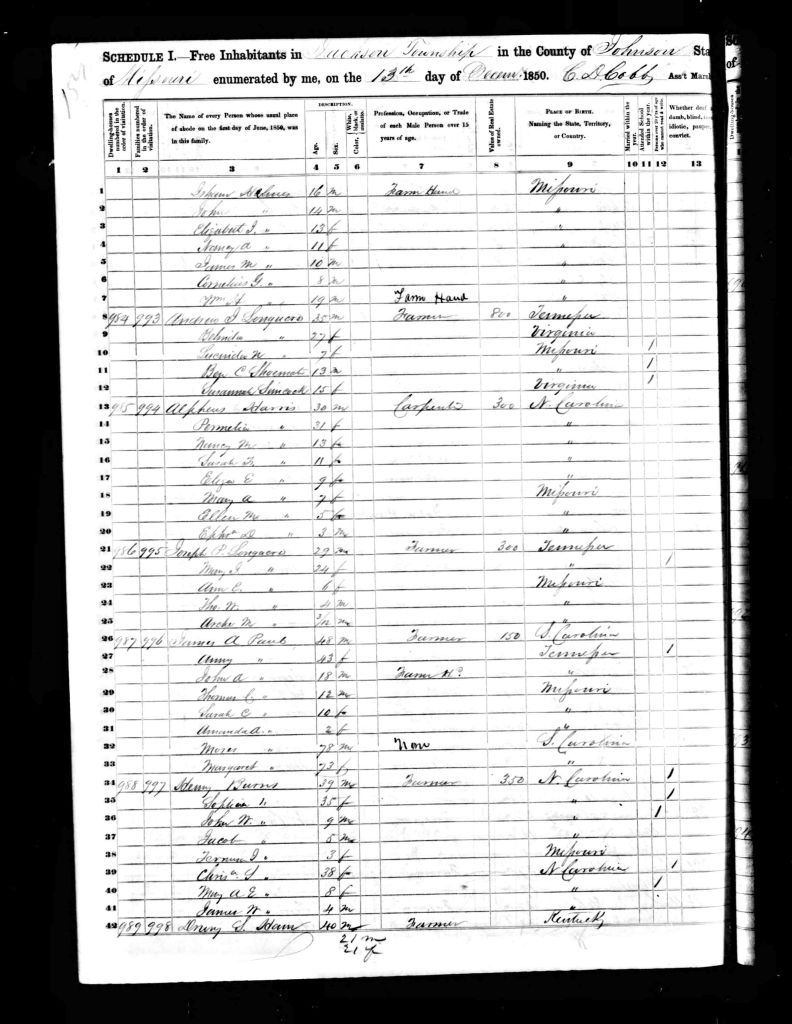 SCHEDULE I.—Free Inhabitants in Jackson Township in the County of Johnson Sta
of Missouri enumerated by me, on the 13th day of Decem 1850. C. D. Cobb Ass't Marsh
Dwelling-houses numbered in the order of visitation. Families numbered in the order of visitation. The Name of every Person whose usual place of abode on the first day of June, 1850, was in this family. DESCRIPTION. Age. Sex. White, black, or mulatto. Color, Profession, Occupation, or Trade of each Male Person over 15 years of age. Value of Real Estate owned. PLACE OF BIRTH. Naming the State, Territory, or Country. Married within the year. Attended School within the year. Whether deaf dumb, blind, idiotic, pauper convict.
1 2 3 4 5 6 7 8 9 10 11 12 13
1 16 m Farm Hand Missouri
2 John " 14 m "
3 Elizabeth J. " 13 f "
4 Nancy A " 11 f "
5 James M " 10 m "
6 Cornelius G. " 8 m "
7 Wm H " 19 m Farm Hand "
8 984 993 Andrew J Longacre 35 m Farmer 800 Tennessee
9 Belinda " 27 f Virginia
10 Lucinda N " 7 f Missouri 1
11 Ben C 13 m " 1
12 Susannah Simcock 15 f Virginia 1
13 985 994 Alpheus Harris 30 m Carpenter 300 N. Carolina
14 Permelia " 31 f "
15 Nancy M. " 13 f "
16 Sarah F. " 11 f "
17 Eliza E " 9 f "
18 Mary A " 7 f Missouri
19 Ellen M " 5 f "
20 Ephm D " 3 m "
21 986 995 Joseph P. Longacre 29 m Farmer 300 Tennessee
22 Mary J. " 24 f " 1
23 Ann E. " 6 f Missouri
24 Tho. W. " 4 m "
25 Arche M " 3/12 m "
26 987 996 James A Paul 48 m Farmer 150 S. Carolina
27 Anny " 43 f Tennessee 1
28 John A " 18 m Farm Hd "
29 Thomas C. " 12 m Missouri
30 Sarah C " 10 f "
31 Amanda A. " 2 f "
32 Moses " 78 m None S. Carolina
33 Margaret " 73 f "
34 988 997 Henry Burns 39 m Farmer 350 N. Carolina 1
35 Sophia " 35 f " 1
36 John W. " 9 m " 1
37 Jacob " 5 m "
38 " 3 f Missouri
39 Chrisa S " 38 f N Carolina 1
40 May A E " 8 f " 1
41 James W " 4 m "
42 989 998 Drury S Ham 40 m Farmer Kentucky
21 m
21 f